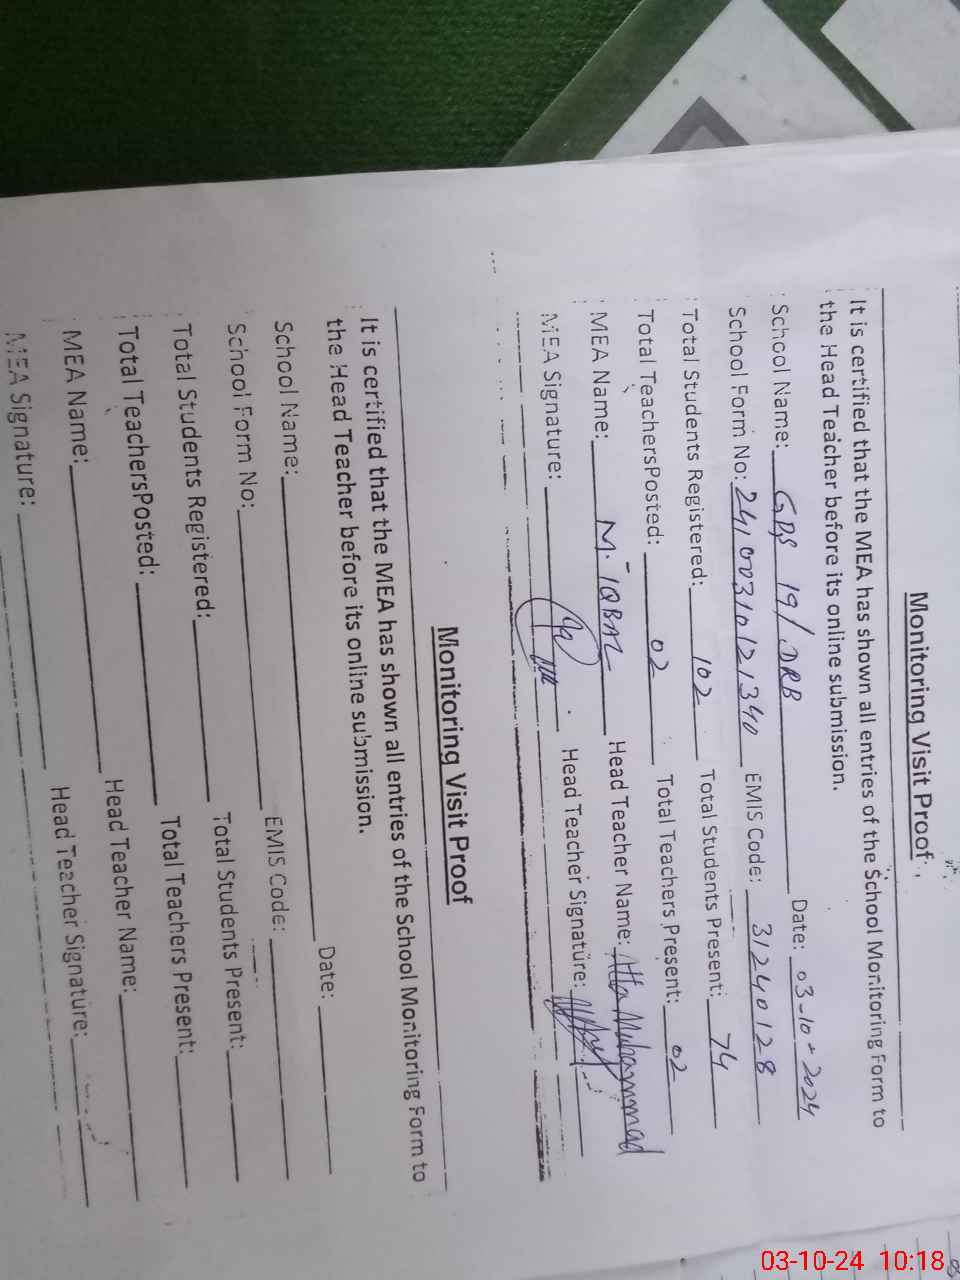 Monitoring Visit Proof
It is certified that the MEA has shown all entries of the School Monitoring Form to
the Head Teacher before its online submission.
School Name: GPS 19/DRB Date: 03-10-2024
School Form No: 24100310121340 EMIS Code: 31240128
Total Students Registered: 102 Total Students Present: 74
Total TeachersPosted: 02 Total Teachers Present: 02
MEA Name: M. IQBAL Head Teacher Name: Atta Muhammad
MEA Signature: Head Teacher Signature:
Monitoring Visit Proof
It is certified that the MEA has shown all entries of the School Monitoring Form to
the Head Teacher before its online submission.
School Name: Date:
School Form No: EMIS Code:
Total Students Registered: Total Students Present:
Total TeachersPosted: Total Teachers Present:
MEA Name: Head Teacher Name:
MEA Signature: Head Teacher Signature:
03-10-24 10:18